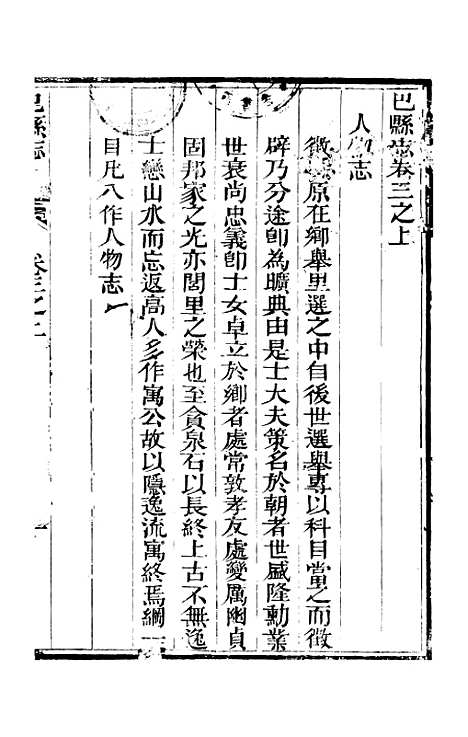 巴縣志卷三之上
人物志
徵辟原在鄉舉里選之中自後世選舉專以科目當之而徵
辟乃分途卽為曠典由是士大夫策名於朝者世盛隆勳業
世衰尚忠義卽士女卓立於鄉者處常敦孝友處變厲幽貞
固邦家之光亦閭里之榮也至貪泉石以長終上古不無逸
士戀山水而忘返高人多作寓公故以隱逸流寓終焉綱一
目凡八作人物志
巴縣志
卷三之上